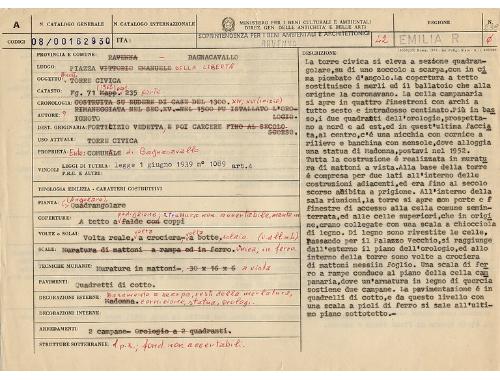 A
N. CATALOGO GENERALE
N. CATALOGO INTERNAZIONALE
MINISTERO PER I BENI CULTURALI E AMBIENTALI
DIREZ. GEN. DELLE ANTICHITÀ E BELLE ARTI
REGIONE
N.
CODICI
08/00162930
ITA:
SOPRINTENDENZA PER I BENI AMBIENTALI E ARCHITETTONICI
RAVENNA
42
EMILIA R
PROVINCIA E COMUNE:
RAVENNA - BAGNACAVALLO
LUOGO:
PIAZZA VITTORIO EMANUELE DELLA LIBERTÀ
OGGETTO:
TORRE CIVICA
CATASTO:
Fg. 71 Mapp. 235
CRONOLOGIA:
COSTRUITA SU RUDERE DI CASE DEL 1300,
RIMANEGGIATA NEL SEC.XV.-NEL 1500 FU ISTALLATO L'ORO-
LOGIO-
AUTORE:
IGNOTO
DEST. ORIGINARIA:
FORTILIZIO VEDETTA, E POI CARCERE FINO AL SECOLO
SCORSO.
USO ATTUALE:
TORRE CIVICA
PROPRIETÀ:
Ente: COMUNALE di Bagnacavallo
VINCOLI
LEGGI DI TUTELA:
legge 1 giugno 1939 n° 1089
art. 4
P.R.G. E ALTRI:
TIPOLOGIA EDILIZIA - CARATTERI COSTRUTTIVI
PIANTA:
Quadrangolare
COPERTURE:
A tetto a falde coi coppi
VOLTE o SOLAI:
Volta reale, volta a crociera, volta a botte,
SCALE:
Muratura di mattoni a rampa ed in ferro.
TECNICHE MURARIE:
Muratura in mattoni - 30 x 16 x 6 a vista
PAVIMENTI:
Quadretti di cotto.
DECORAZIONI ESTERNE:
Basamento a scarpa, resti della merlatura,
Madonna. cornicione, statua, orologi.
DECORAZIONI INTERNE:
ARREDAMENTI:
2 campane- Orologio a 2 quadranti.
STRUTTURE SOTTERRANEE:
1 p.s.; fond. non accertabili.
DESCRIZIONE:
La torre civica si eleva a sezione quadran-
golare, su di uno zoccolo a scarpa, con in ci-
ma piombato d'angolo. La copertura a tetto
sostituisce i merli ed il ballatoio che alla
origine la coronavano. La cella campanaria
si apre in quattro finestroni con archi a
tutto sesto e intradosso centinato. Più in bas-
so, i due quadranti dell'orologio, prospetta-
no a nord e ad est, ed in quest'ultima faccia-
ta, al centro, c'è una nicchia con cornice a
rilievo e banchina con mensole, dove alloggia
una statua di Madonna, postavi nel 1952.
Tutta la costruzione è realizzata in muratu-
ra di mattoni a vista. Alla base della torre
è compresa per due lati all'interno delle
costruzioni adiacenti, ed era fino al secolo
scorso adibita a prigione. All'interno della
sala riunioni, la torre si apre con porte e f
finestre di accesso alla cella comune semin-
terrata, ed alle celle superiori, che in ori-
gine, erano collegate con una scala a chiocciola
di legno. Il legno sono rivestite le celle.
Passando per il Palazzo Vecchio, si raggiun-
gono dall'esterno il piano dell'orologio, ed allo
interno della torre sono volte a crociera di
mattoni messi in foglio. Una scala di fer
ro a rampe conduce al piano della cella cam
panaria, dove un'armatura in legno di quercia
sostiene due campane. La pavimentazione è in
quadrelli di cotto, e da questo livello con
una scala a pioli di ferro si sale all'ulti-
mo piano sottotetto.-